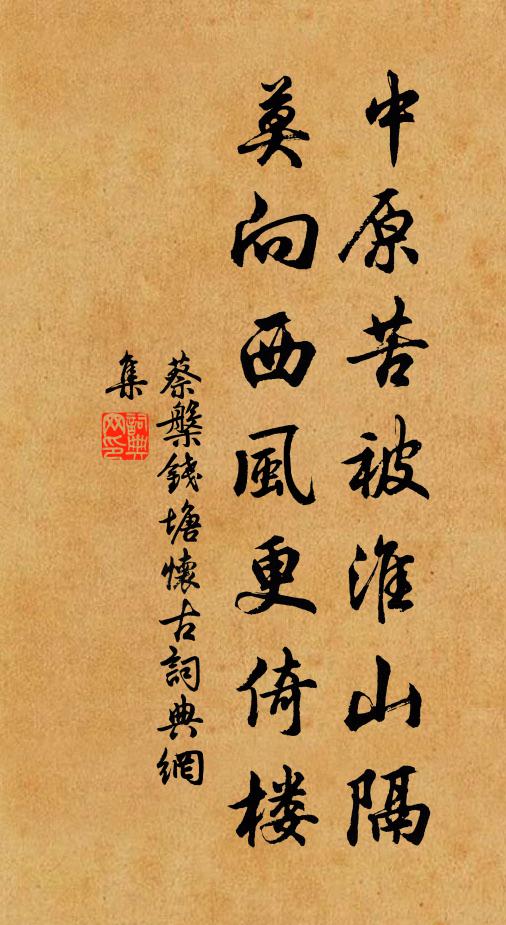 中原苦被淮山隔
莫向西風更倚楼
蔡槃錢塘懷古詞典網
集
詞典
网印